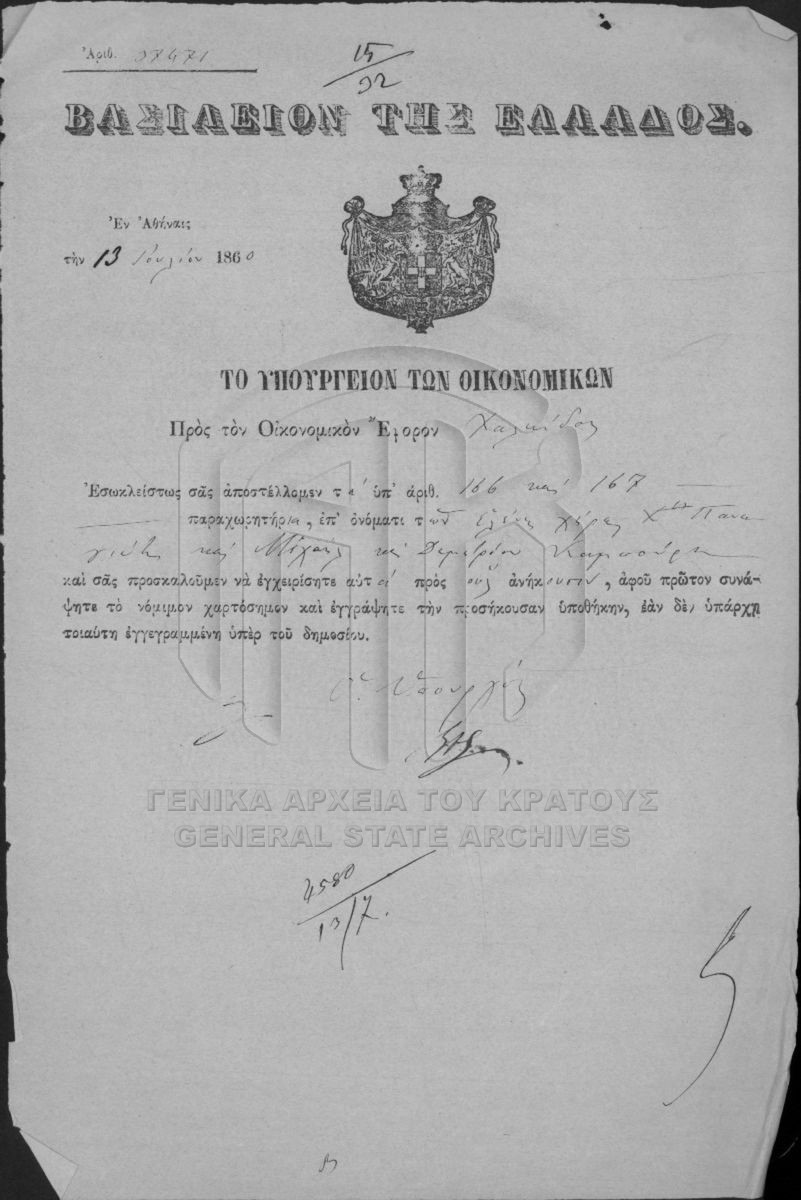 Ἀριθ. 37471
15
92
ΒΑΣΙΛΕΙΟΝ ΤΗΣ ΕΛΛΑΔΟΣ.
Ἐν Ἀθήναις
τὴν 13 Ἰουλίου 1860
ΤΟ ΥΠΟΥΡΓΕΙΟΝ ΤΩΝ ΟΙΚΟΝΟΜΙΚΩΝ
Πρὸς τὸν Οἰκονομικὸν Ἔφορον Χαλκίδος
Ἐσωκλείστως σᾶς ἀποστέλλομεν τὰ ὑπ' ἀριθ. 166 καὶ 167
παραχωρητήρια, ἐπ' ὀνόματι τῶν Ἑλένης χήρας Χ΄΄ Πανα
γιώτη καὶ Μιχαὴλ καὶ Δημητρίου
καὶ σᾶς προσκαλοῦμεν νὰ ἐγχειρίσητε αὐτὰ πρὸς οὓς ἀνήκουσιν, ἀφοῦ πρῶτον συνά-
ψητε τὸ νόμιμον χαρτόσημον καὶ ἐγγράψητε τὴν προσήκουσαν ὑποθήκην, ἐὰν δὲν ὑπάρχῃ
τοιαύτη ἐγγεγραμμένη ὑπὲρ τοῦ δημοσίου.
Ὁ Ὑπουργὸς
ΓΕΝΙΚΑ ΑΡΧΕΙΑ ΤΟΥ ΚΡΑΤΟΥΣ
GENERAL STATE ARCHIVES
4580
13/7.